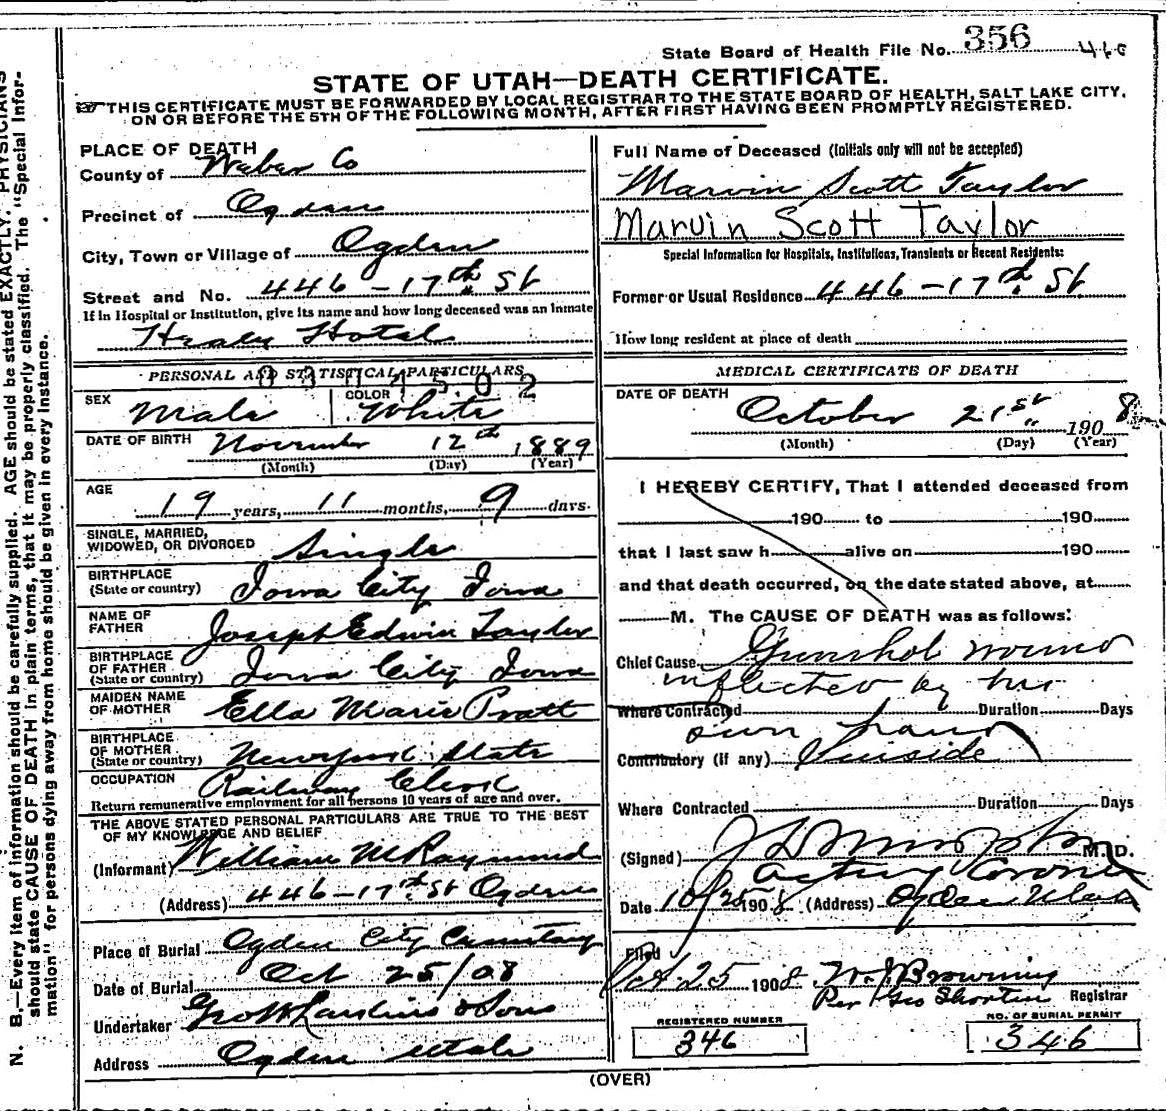 State Board of Health File No. 356
STATE OF UTAH—DEATH CERTIFICATE.
THIS CERTIFICATE MUST BE FORWARDED BY LOCAL REGISTRAR TO THE STATE BOARD OF HEALTH, SALT LAKE CITY,
ON OR BEFORE THE 5TH OF THE FOLLOWING MONTH, AFTER FIRST HAVING BEEN PROMPTLY REGISTERED.
N. B.—Every item of information should be carefully supplied. AGE should be stated EXACTLY. PHYSICIANS
should state CAUSE OF DEATH in plain terms, that it may be properly classified. The "Special Infor-
mation" for persons dying away from home should be given in every instance.
PLACE OF DEATH
County of Weber Co
Precinct of Ogden
City, Town or Village of Ogden
Street and No. 446 - 17th St
If in Hospital or Institution, give its name and how long deceased was an Inmate
Healy Hotel
PERSONAL AND STATISTICAL PARTICULARS
SEX Male COLOR White
DATE OF BIRTH November 12th 1889
(Month) (Day) (Year)
AGE 19 years, 11 months, 9 days.
SINGLE, MARRIED,
WIDOWED, OR DIVORCED Single
BIRTHPLACE
(State or country) Iowa City Iowa
NAME OF
FATHER Joseph Edwin Taylor
BIRTHPLACE
OF FATHER
(State or country) Iowa City Iowa
MAIDEN NAME
OF MOTHER Ella Marie Pratt
BIRTHPLACE
OF MOTHER
(State or country) Newyork State
OCCUPATION Railway Clerk
Return remunerative employment for all persons 10 years of age and over.
THE ABOVE STATED PERSONAL PARTICULARS ARE TRUE TO THE BEST
OF MY KNOWLEDGE AND BELIEF
(Informant) William M Raymond
(Address) 446 - 17th St Ogden
Place of Burial Ogden City Cemetary
Date of Burial Oct 25/08
Undertaker & Sons
Address Ogden Utah
Full Name of Deceased (Initials only will not be accepted)
Marvin Scott Taylor
Marvin Scott Taylor
Special Information for Hospitals, Institutions, Transients or Recent Residents:
Former or Usual Residence 446 - 17th St
How long resident at place of death
MEDICAL CERTIFICATE OF DEATH
DATE OF DEATH October 21st 1908
(Month) (Day) (Year)
I HEREBY CERTIFY, That I attended deceased from
190 to 190
that I last saw h alive on 190
and that death occurred, on the date stated above, at
M. The CAUSE OF DEATH was as follows:
Chief Cause Gunshot wound
inflicted by his
Where Contracted Duration Days
own hand
Contributory (if any) Suiside
Where Contracted Duration Days
(Signed) M.D.
Acting Coroner
Date 10/25 1908 (Address) Ogden Utah
Filed
Oct 25 1908 W. J. Browning
Per Geo Shorten Registrar
REGISTERED NUMBER
346
NO. OF BURIAL PERMIT
346
(OVER)